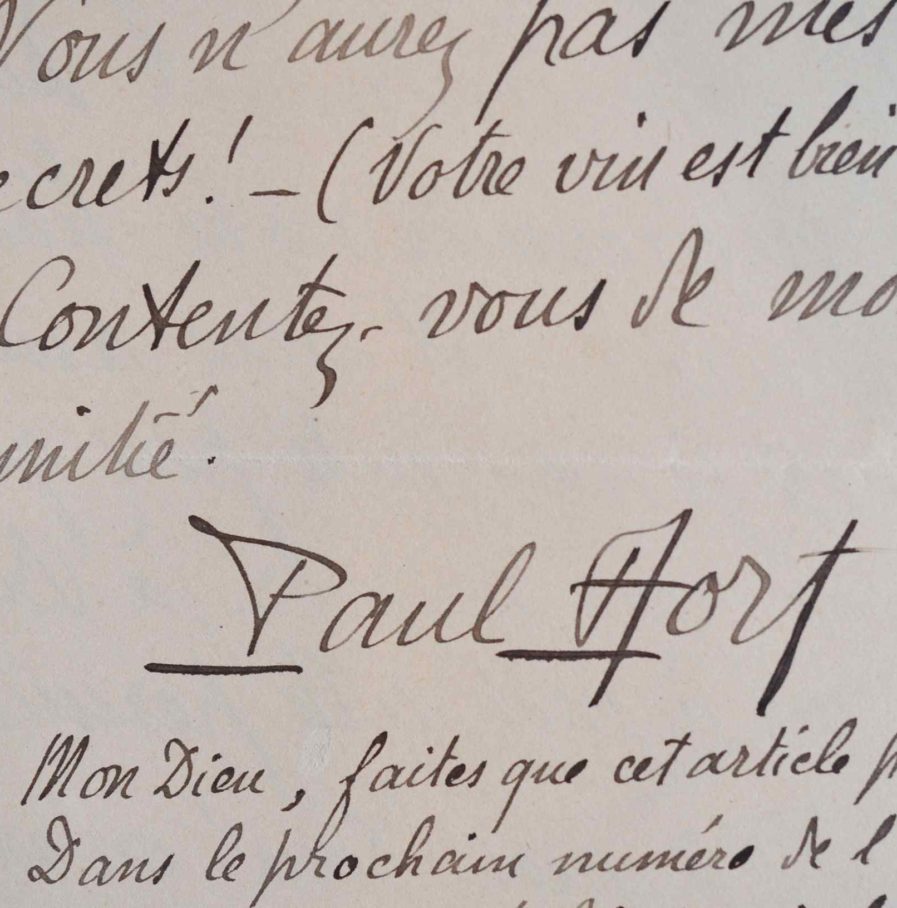 Vous n'aurez pas mes
ecrets! – (Votre vin est bien
Contentez-vous de mo
mitié.
Paul Fort
Mon Dieu, faites que cet article p
Dans le prochain numéro de l